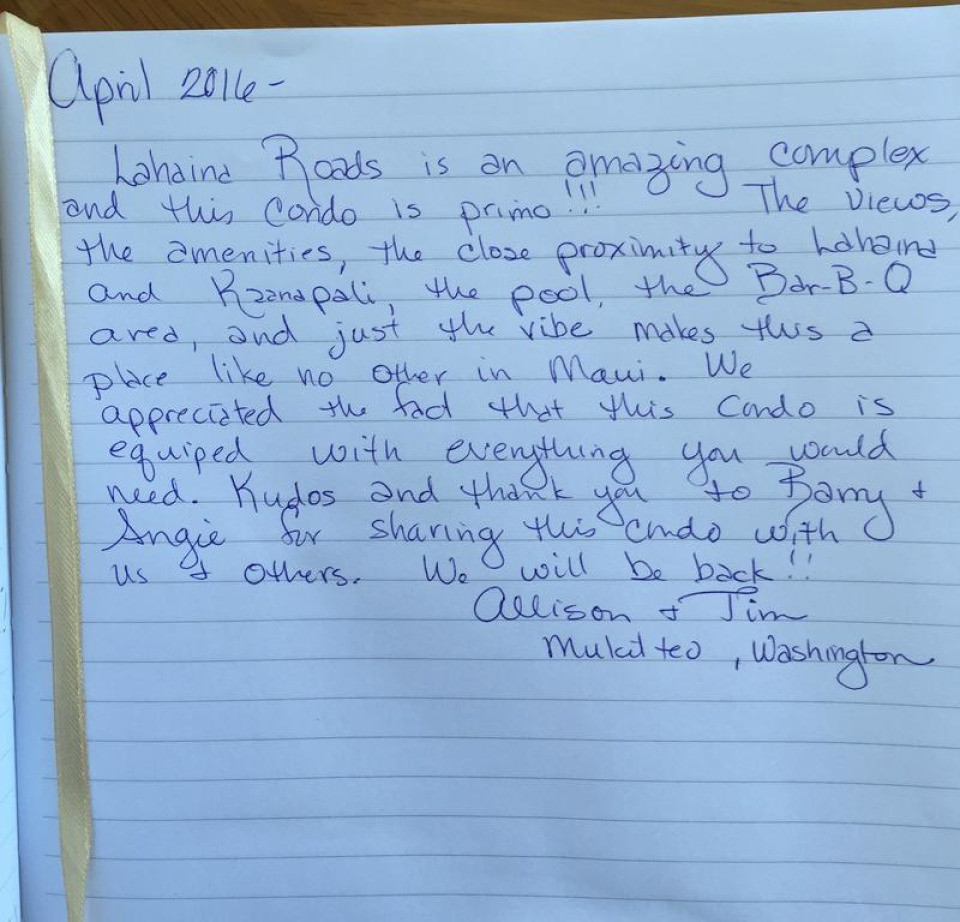 April 2016-
Lahaina Roads is an amazing complex
and this Condo is primo!!! The views,
the amenities, the close proximity to Lahaina
and Kaanapali, the pool, the Bar-B-Q
area, and just the vibe makes this a
place like no other in Maui. We
appreciated the fact that this Condo is
equiped with everything you would
need. Kudos and thank you to Barry +
Angie for sharing this condo with
us & others. We will be back!!
Allison & Tim
Mukilteo, Washington